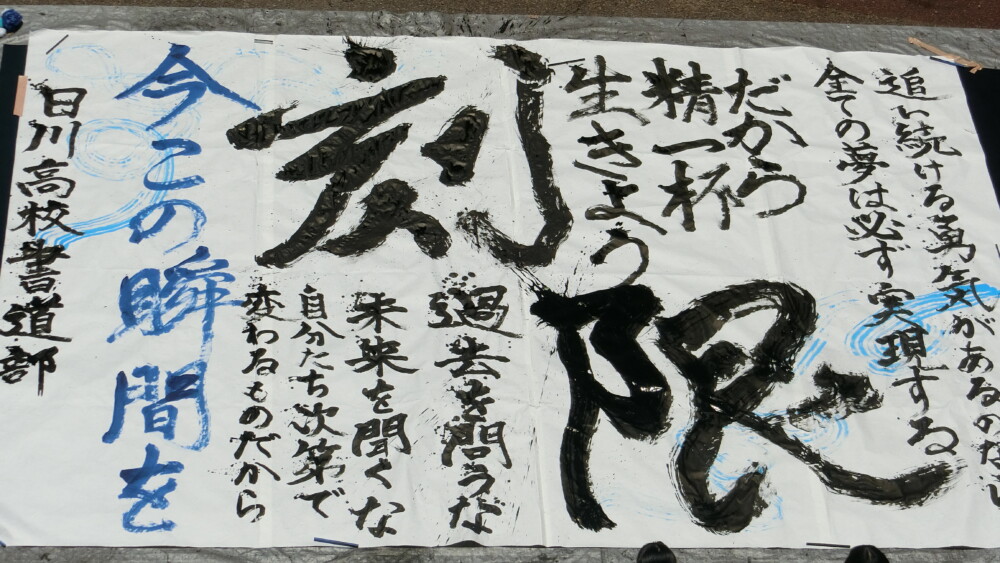 追い続ける勇気があるのなら
全ての夢は必ず実現する
だから
精一杯
生きよう
限
刻
過去を問うな
未来を聞くな
自分たち次第で
変わるものだから
今この瞬間を
日川高校書道部